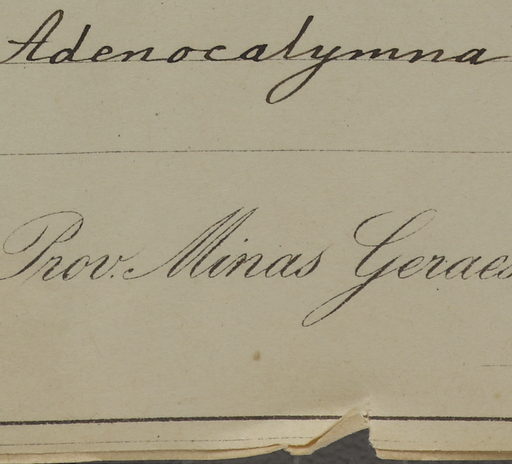 Adenocalymna
Prov. Minas Geraes